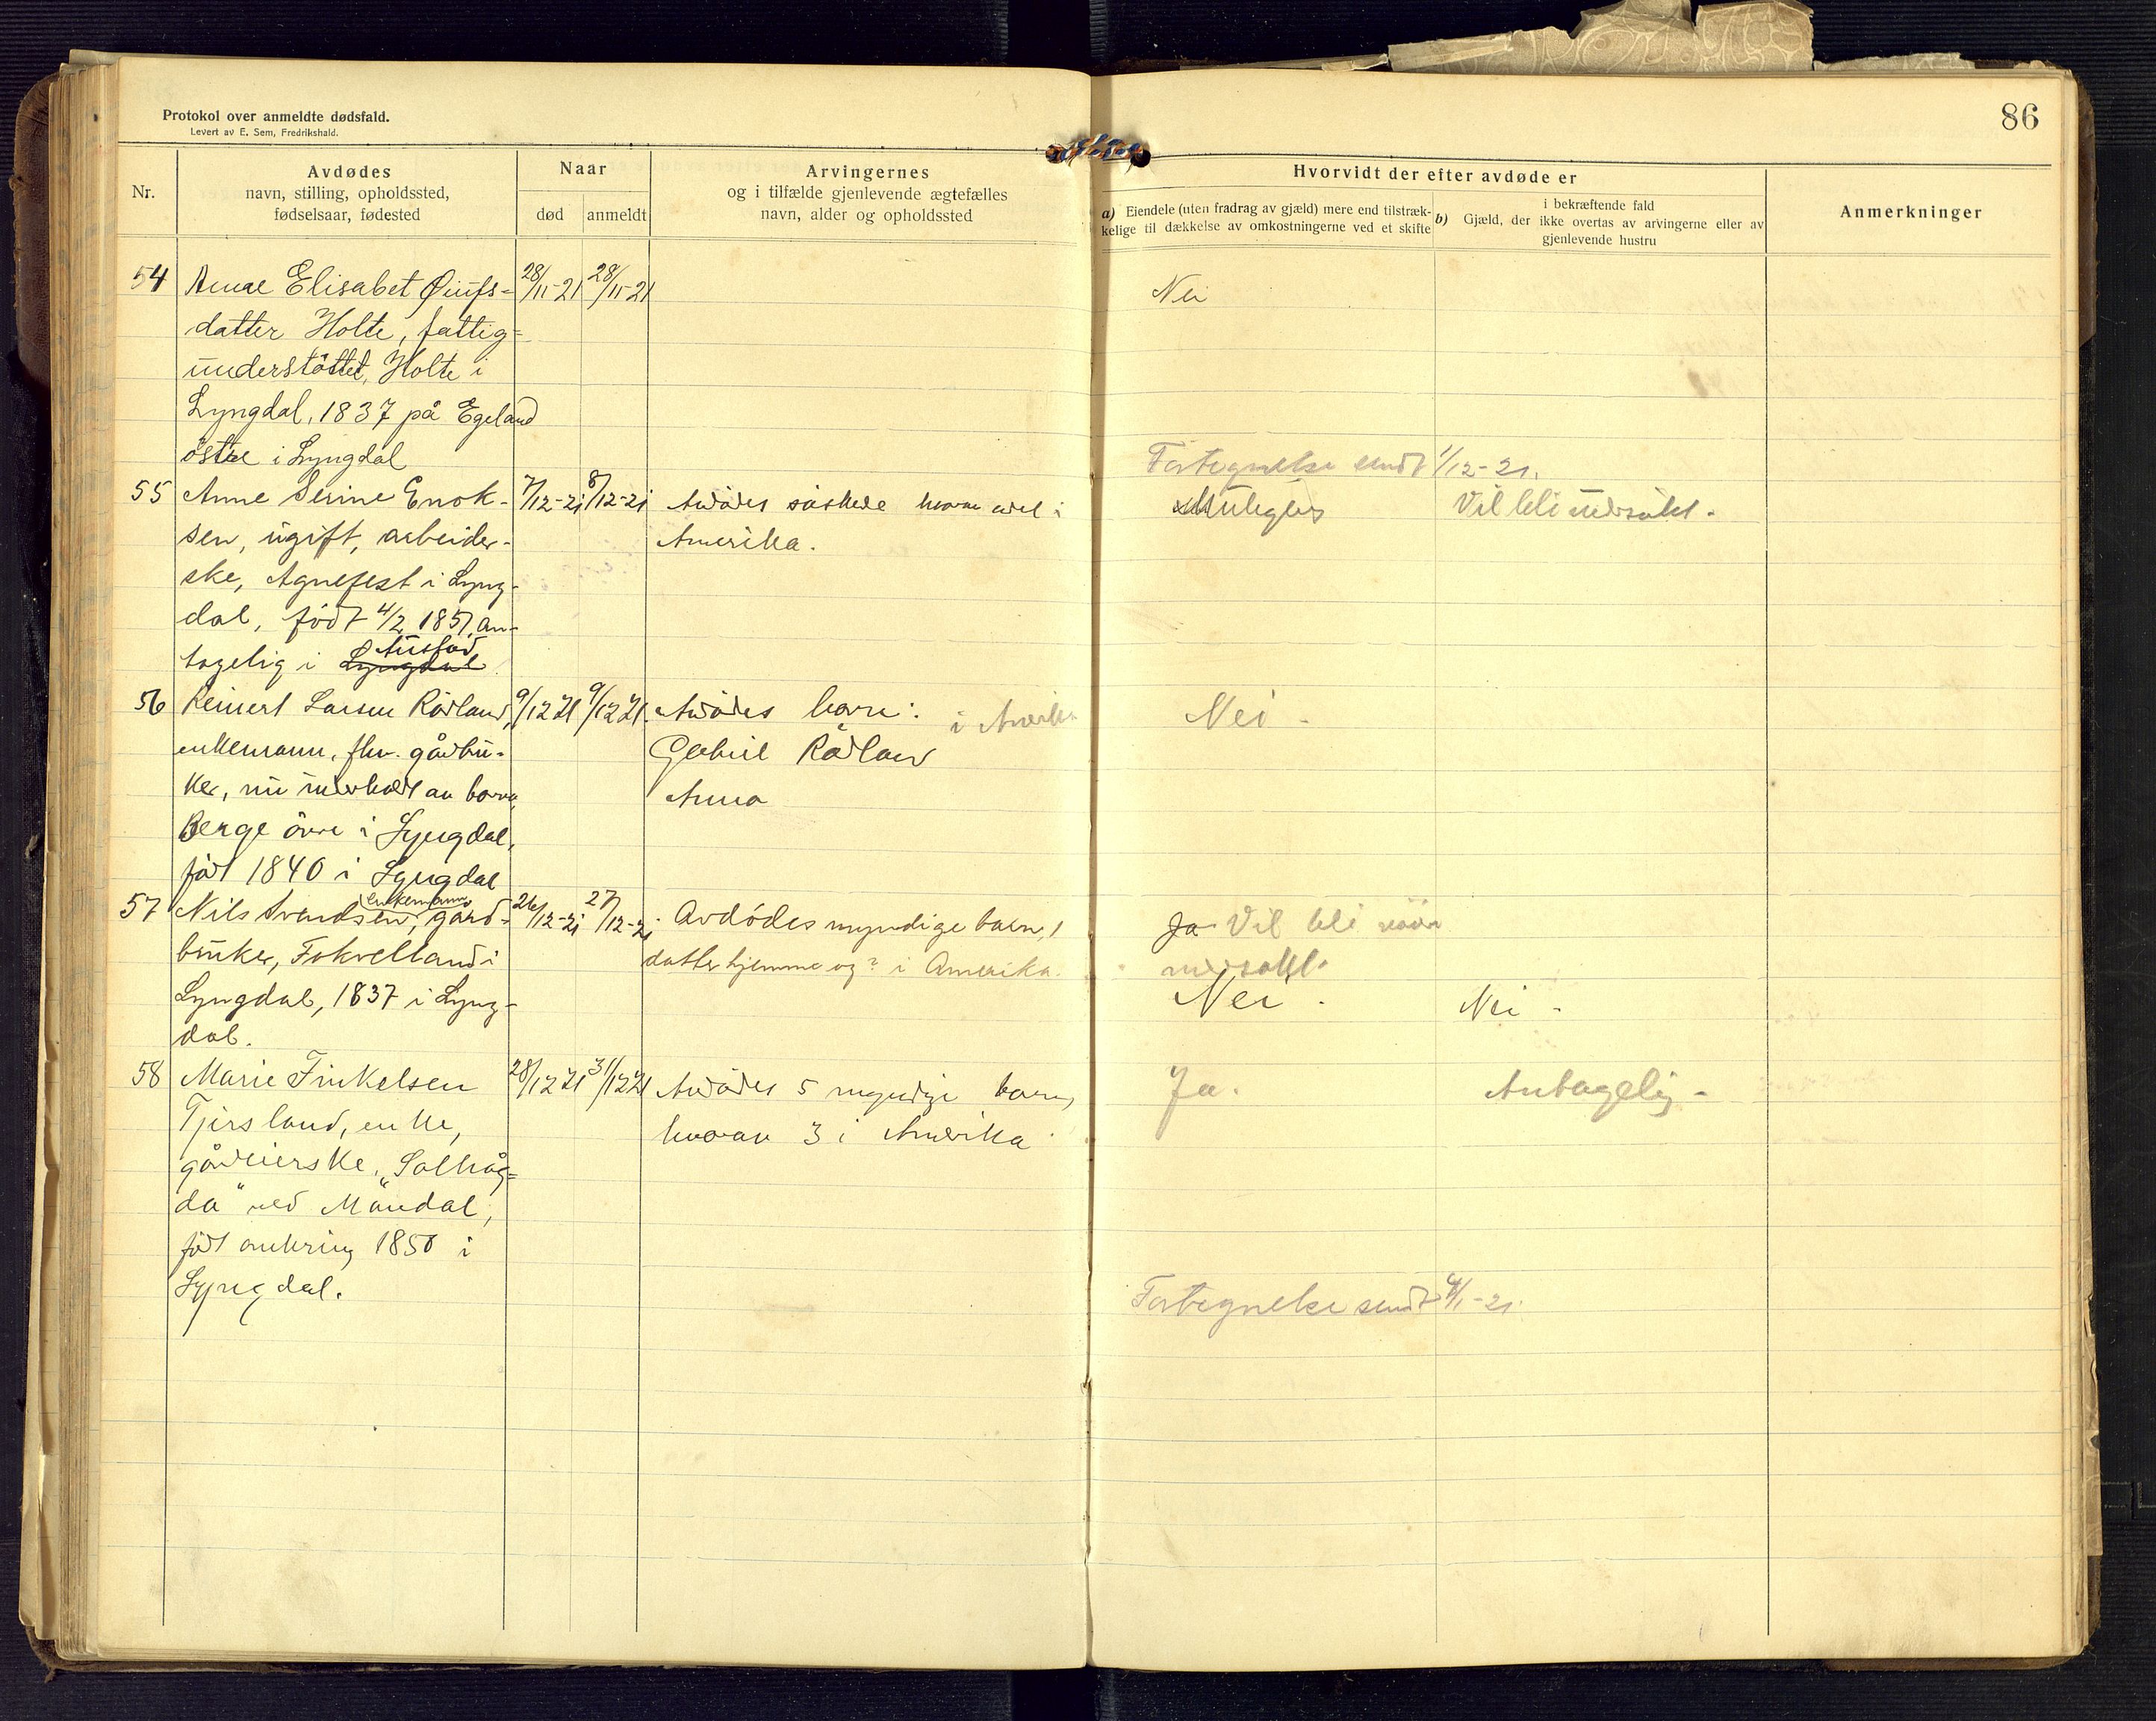 Protokol over anmeldte dødsfald.
Levert av E. Sem, Fredrikshald.
86
Nr.
Avdødes
navn, stilling, opholdssted,
fødselsaar, fødested
Naar
død
anmeldt
Arvingernes
og i tilfælde gjenlevende ægtefælles
navn, alder og opholdssted
Hvorvidt der efter avdøde er
a) Eiendele (uten fradrag av gjæld) mere end tilstræk-
kelige til dækkelse av omkostningerne ved et skifte
i bekræftende fald
b) Gjæld, der ikke overtas av arvingerne eller av
gjenlevende hustru
Anmerkninger
54 Anne Elisabet 28/11-21 28/11-21 Nei
datter Holte, fattig=
understöttet, Holte i
Lyngdal, 1837 på Egeland
östre i Lyngdal
Fortegnelse sendt 1/12-21.
55 Anne Serine Enok- 7/12-21 8/12-21 Avdödes söskede hvorav i Muligens Vil bli undersökt.
sen, ugift, arbeider- Amerika.
ske, Agnefest i Lyng-
dal, födt 4/2 1857, an-
Austad
tagelig i Lyngdal
56 Reinert Larsen Rödland, 9/12 21 9/12 21. Avdödes barn: i Amerika Nei -
enkemann, fhv. gårdbru- Gabriel Rödland
ker, nu underholdt av barna, Anna
Berge övre i Lyngdal,
födt 1840 i Lyngdal
enkemann
57 Nils Svendsen, gård- 26/12-21 27/12-21 Avdödes myndige barn, 1 Ja Vil bli
bruker, Fokvelland i datter hjemme og ? i Amerika.
Lyngdal, 1837 i Lyng- Nei. Nei -
dal.
58 Marie Tinkelsen 28/12 21 31/12 21 Avdödes 5 myndige barn, Ja. Antagelig -
Tjersland, enke, hvorav 3 i Amerika
gårdeierske, "Solhög-
da" ved Mandal,
födt omkring 1850 i
Lyngdal.
Fortegnelse sendt 4/1-21.